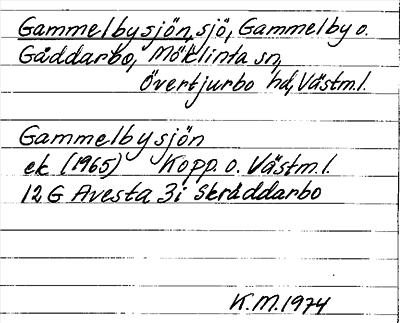 Gammelbysjön, sjö, Gammelby o.
Gåddarbo, Möklinta sn,
Övertjurbo hd, Västm.l.
Gammelbysjön
ek (1965) Kopp. o. Västm.l.
12 G Avesta 3i Skräddarbo
K.M.1974